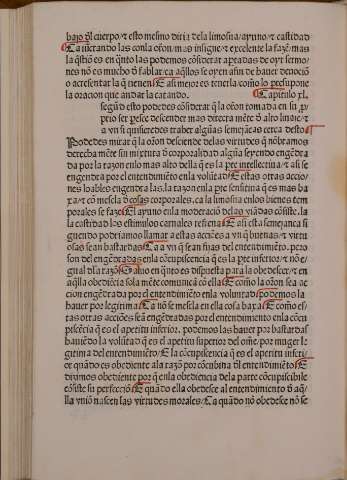 bajo đl cuerpo/τ esto mesmo diria dela limosna/ayuno/τ castidad
Ca íuerando las con la oroñ/mas insigne/τ excelente la fazē/mas
la q̄stiō es en q̄nto las podemos cōsiderar aptadas de oyr sermo/
nes nō es mucho đ fablar/ca aq̄llos se oyen afin de hauer deuociō
o acresentar la q̄ tienen/E asi mejor es tenerla como lo presupone
la oracion que andar la catando. Capitulo xl.
segūd esto podedes cōsiderar q̄ la oroñ tomada en su p
prio ser pesce descender mas directa mēte đ alto linaie/τ
a vn si quisieredes traher algūas semejācas cerca desto
Podedes mirar q̄ la oroñ desciende delas virtudes q̄ nōbramos
derecha mēte sin mixtura đ corporalidad algūa seyendo engēdra
da por la razon en lo mas alto della q̄ es la pte intellectiua/τ asi se
engendra por el entendimiēto en la volūtad/E estas otras accio/
nes loables engendra las la razon en la pte sensitiua q̄ es mas ba
xa/τ cō mescla đ cosas corporales. ca la limosna en los bienes tem
porales se faze/El ayuno en la moderaciō delas viādas cōsiste. la
la castidad los estimulos carnales refrena/E asi esta semejança si
guendo podriamos llamar a estas acciōes a vn q̄ buenas/τ virtu
osas sean bastardas/Ca a vn q̄ sean fijas del entendimiēto. pero
son del engēdradas en la cōcupiscencia q̄ es la pte inferior/τ nō e/
gual đla razō/Saluo en quāto es dispuesta para la obedescer/τ en
aq̄lla obediēcia sola mēte comunica cō ella/E como la oroñ sea ac
cion engēdrada por el entendimiēto en la volūtad podemos la
hauer por legitima/Ca nō se mescla en ella cosa baxa/E como es/
tas otras acciōes seā engēdradas por el entendimiento en la cōcu
piscēcia q̄ es el apetitu inferior. podemos las hauer por bastardas
hauiēdo la volūtad q̄ es el apetitu superior del ome/por muger le
gitima del entendimiēto/E la cōcupiscencia q̄ es el apetitu inferi/
or quādo es obediente ala razō por cōcubina đl entendimiēto/E
diximos obediente por q̄ en la obediencia dela parte cōcupiscibile
cōsiste su perfecciō/E quādo ella obedesce al entendimiento đ aq̄/
lla vniō nascen las virtudes morales/Ca quādo nō obedesce nō se